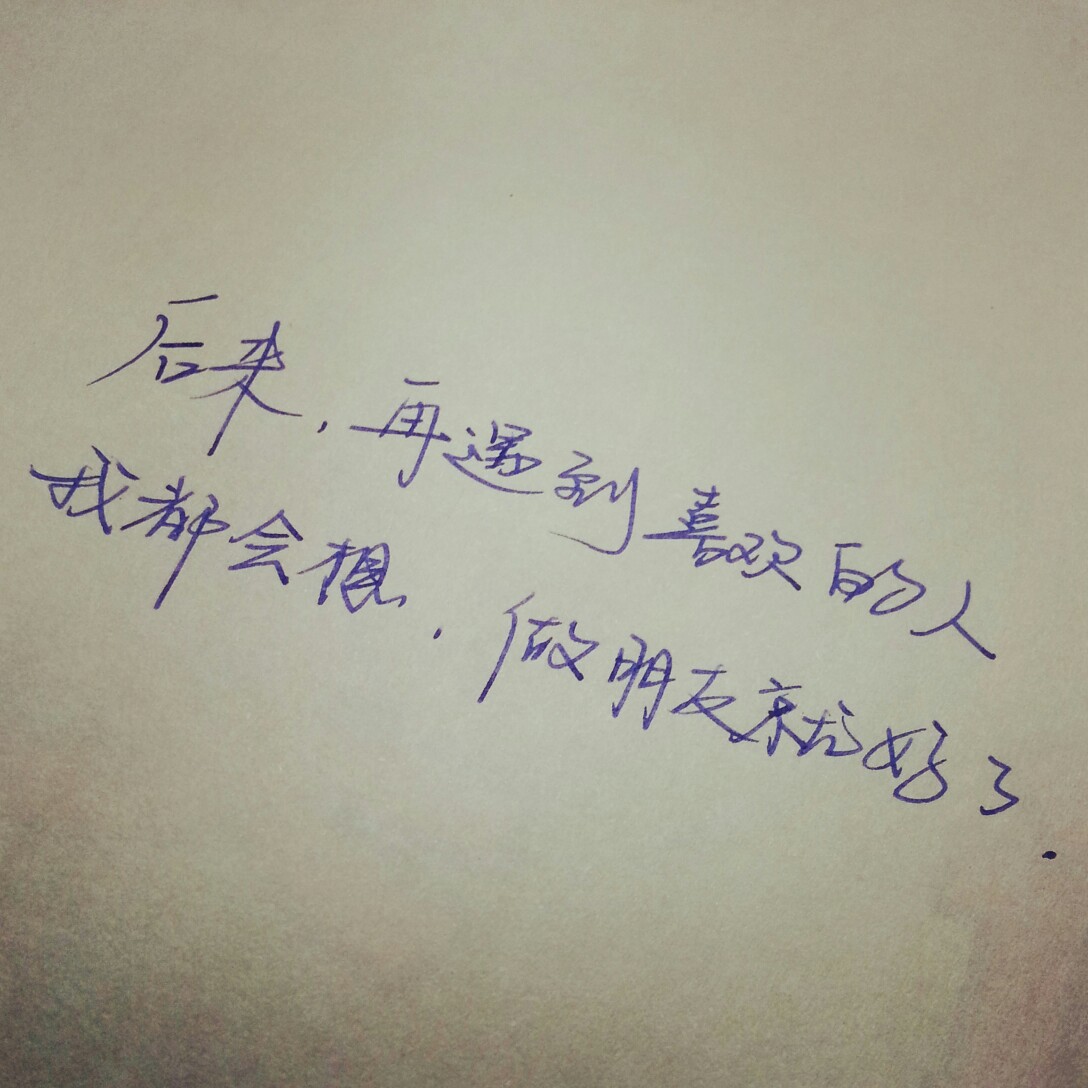 后来,再遇到喜欢的人
我都会想,做朋友就好了.